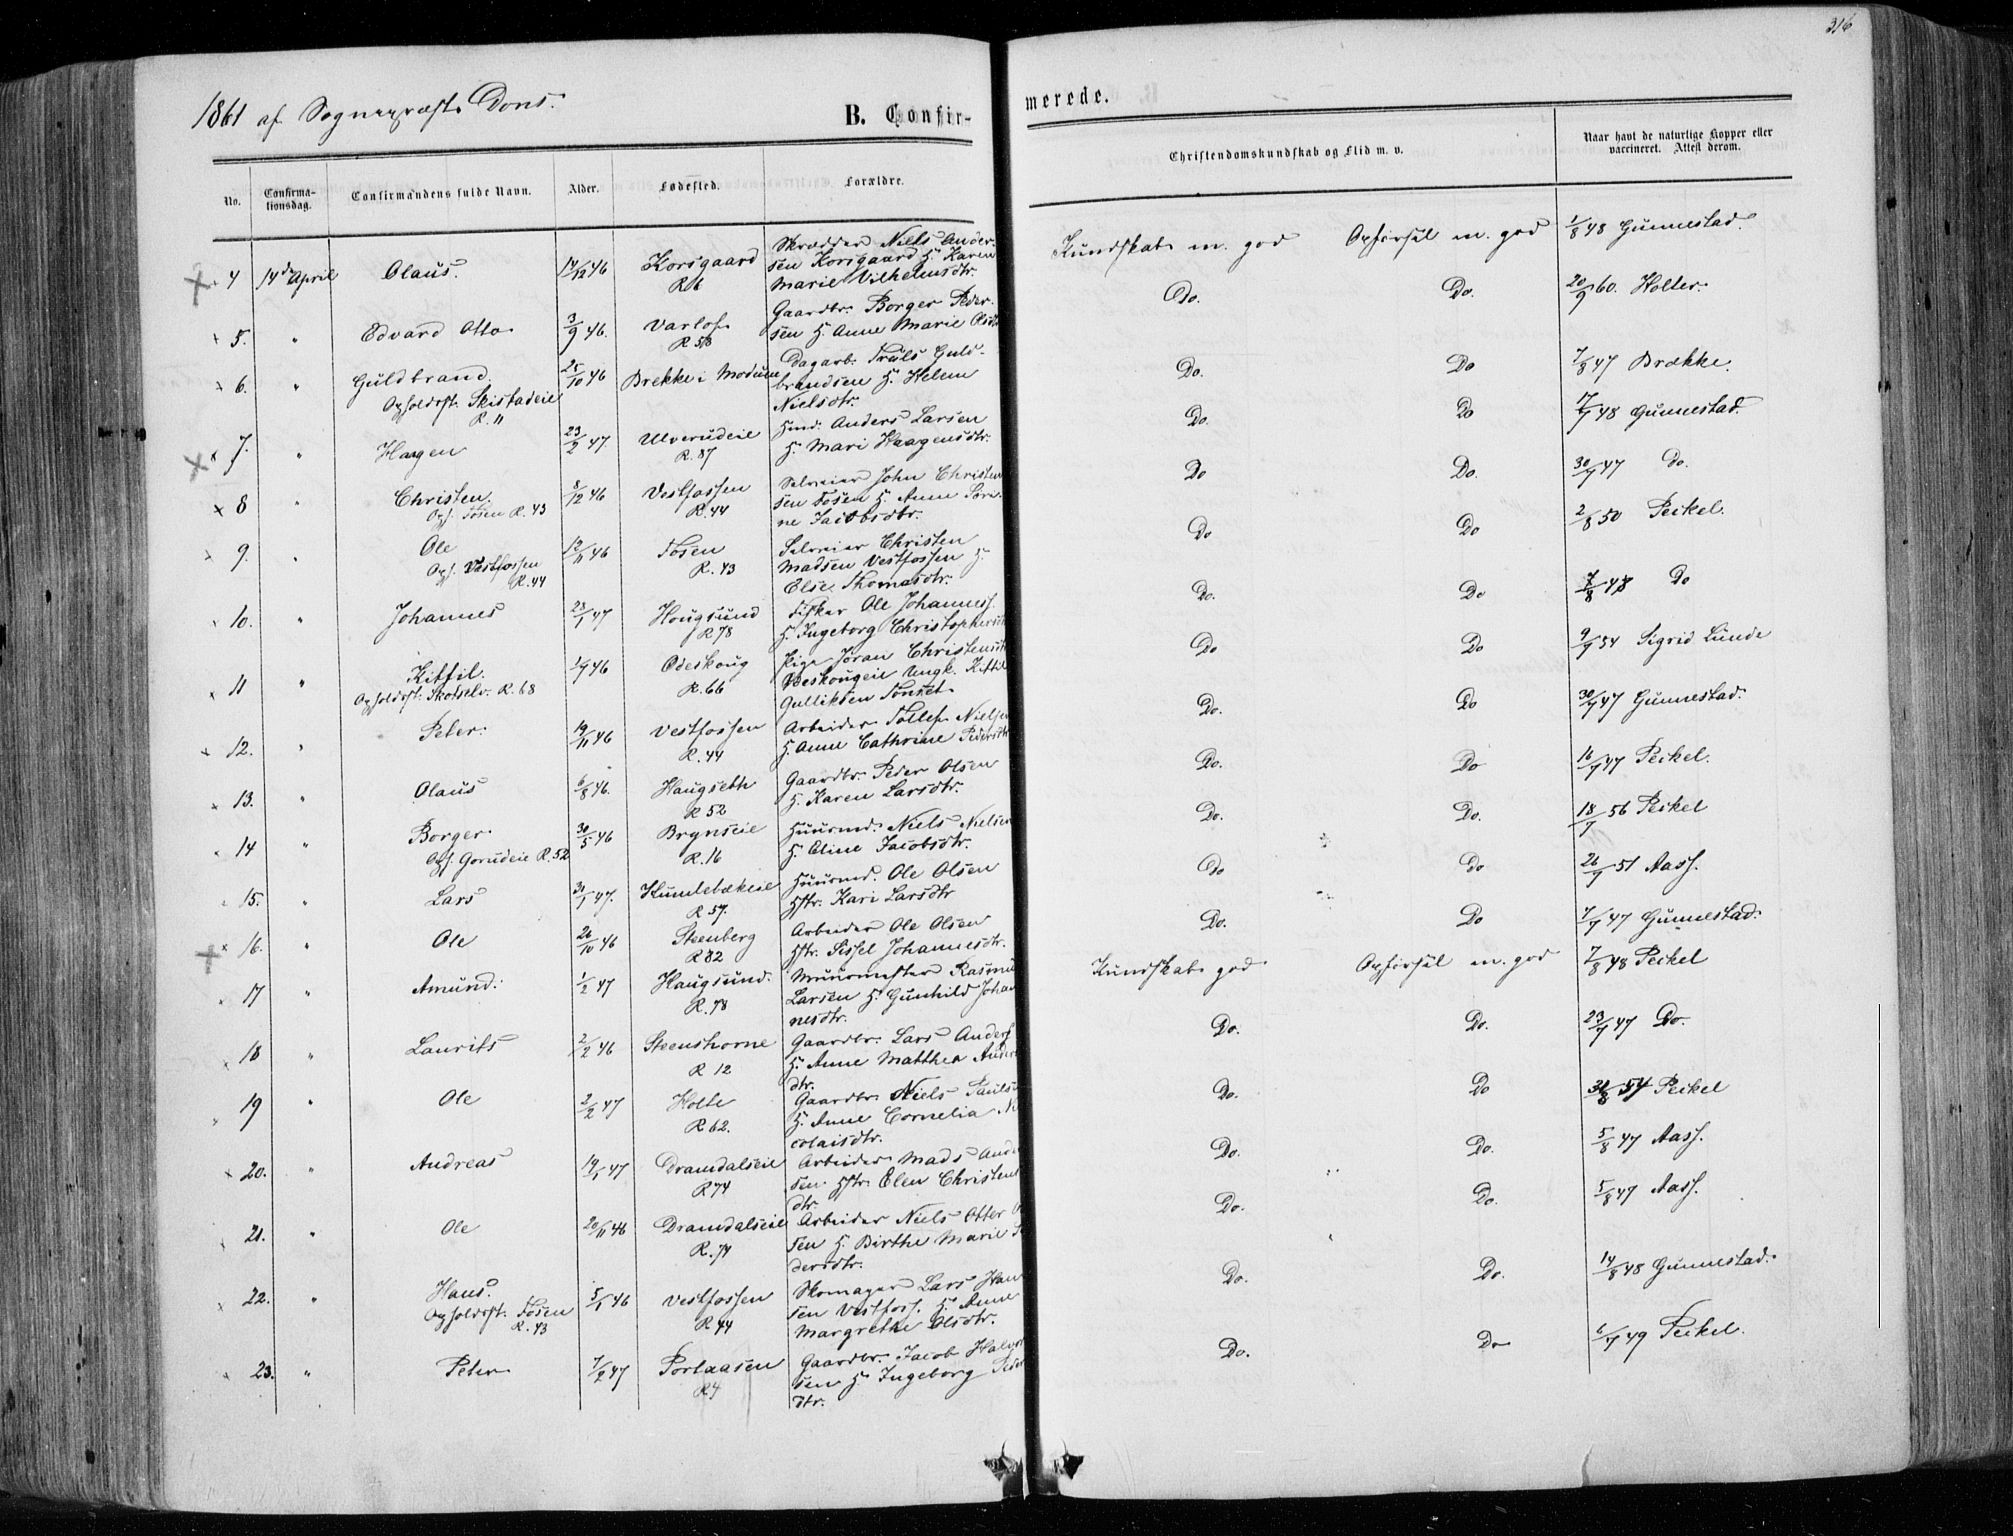 316
1861 af Sognepræst Dons.
B. Confir-
merede.
No.
Confirma-
tionsdag.
Confirmandens fulde Navn.
Alder.
Fødested.
Forældre.
Christendomskundskab og Flid m. v.
Naar havt de naturlige Kopper eller
vaccineret. Attest derom.
4 14de April Olaus. 14/12 46 Korsgaard R 6
Skrædder Niels Ander-
sen Korsgaard H. Karen
Marie Vilhelmsdtr.
Kundskab m. god Opførsel m. god 1/8 48 Gunnestad.
5. " Edvard Otto 3/9 46. Varlo R 58
Gaardbr. Borger Peder-
sen H. Anne Marie Olsdtr
Do. Do. 20/9 60. Holter.
6. " Guldbrand. 25/10 46 Brekke i Modum
Opholdsst. Skistadeie
R. 11
Dagarb. Truls Guld-
brandsen H. Helene
Nielsdtr.
Do. Do 7/8 47 Brække.
7. " Haagen 23/2 47 Ulverudeie R. 87
Hmd. Anders Larsen
H. Mari Haagensdtr.
Do. Do 17/7 48 Gunnestad.
8 " Christen. 8/12 46 Vestfossen R. 44
Oph. Fosen R. 43
Selveier John Christen-
sen Fosen H. Anne Sere-
ne Jacobsdtr.
Do Do. 30/7 47 Do.
9. " Ole 12/11 46 Fosen R. 43
Oph. Vestfossen
R. 44
Selveier Christen
Madsen Vestfossen H.
Else Thomasdtr.
Do Do 2/8 50 Peckel.
10. " Johannes 23/1 47 Hougsund R 78
Fisker Ole Johanness.
H. Ingeborg Christophersdtr
Do. Do 7/8 48 Do
11 " Kittil. 1/9 46 Odeskoug R. 66
Opholdsst. Skotselv. R. 68
Pige Joran Christensdtr
Odeskougeie Ungk. Kittil
Gulliksen Tonset.
Do Do 9/9 54 Sigrid Lunde
12. " Peter. 19/11 46 Vestfossen R. 44
Arbeider Tollef Nielsen
H. Anne Cathrine Pedersdtr
Do. Do 30/7 47 Gunnestad.
13. " Olaus 6/8 46. Haugseth R 52
Gaardbr. Peder Olsen
H. Karen Larsdtr.
Do. Do 16/7 47 Peckel.
14 " Borger. 30/5 46 Brynseie R. 16
Oph. Gorudeie R. 52
Huusmd. Niels Nielsen
H. Eline Jacobsdtr.
Do. Do. 18/7 56 Peckel
15. " Lars 31/1 47. Humlebækeie R 57.
Huusmd. Ole Olsen
Hstr. Kari Larsdtr
Do Do 26/7 51 Aass.
16. " Ole 26/10 46 Steenberg R 82
Arbeider Ole Olsen
Hstr. Sissel Johannesdtr.
Do. Do 7/7 47 Gunnestad.
17 " Amund. 1/2 47 Haugsund. R. 78
Muurmester Rasmus
Larsen H. Gunhild Johan-
nesdtr.
Kundskab god Opførsel m. god 7/8 48 Peckel
18 " Laurits 2/2 46 Steenshorne R 12
Gaardbr. Lars Anders
H. Anne Matthea Anders
dtr.
Do. Do. 23/7 47 Do.
19 " Ole 2/2 47 Holte R 62.
Gaardbr. Niels Pauls
H. Anne Cornelia Ni
colaisdtr.
Do. Do 54 Peckel
20. " Andreas 19/1 47 Dramdalseie R 74
Arbeider Mads Ander
sen Hstr. Elen Christens
dtr.
Do. Do. 5/8 47 Aass.
21. " Ole 20/11 46 Dramdalseie R. 74
Arbeider Niels Otter
sen H. Birthe Marie Pe
dersdtr.
Do. Do. 5/8 47 Aass.
22. " Hans. 5/1 46 Vestfossen R 44
Opholdsst. Fosen
R. 43
Skomager Lars Han
sen Vestfoss. H. Anne
Margrethe Olsdtr.
Do. Do. 14/8 48 Gunnestad.
23. " Peter 7/2 47 Portaasen R 4
Gaardbr. Jacob Halvor
sen H. Ingeborg Peder
dtr.
Do. Do 6/7 49 Peckel.